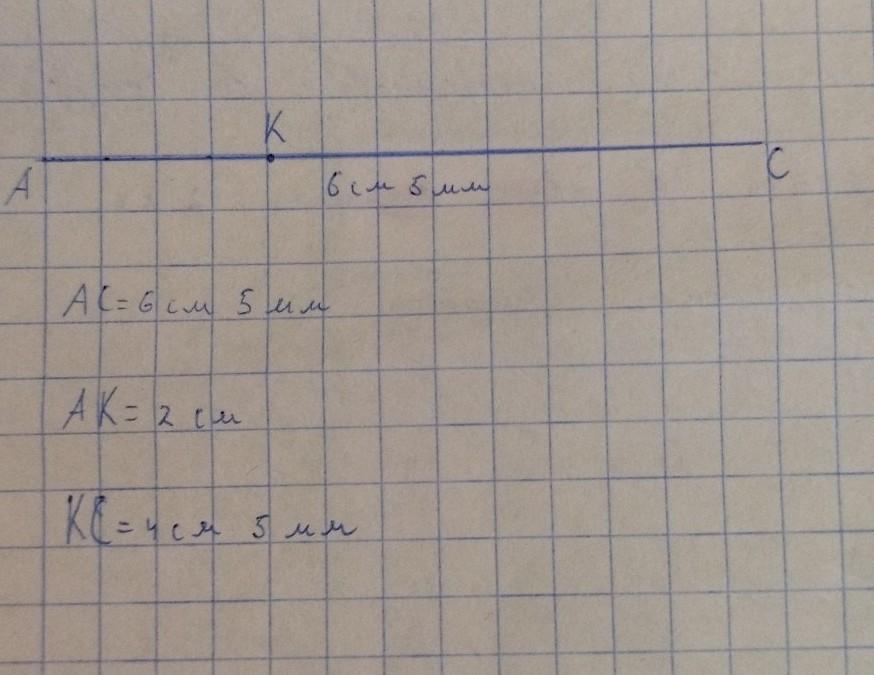 K
A
C
6 см 5 мм
AC = 6 см 5 мм
AK = 2 см
KC = 4 см 5 мм